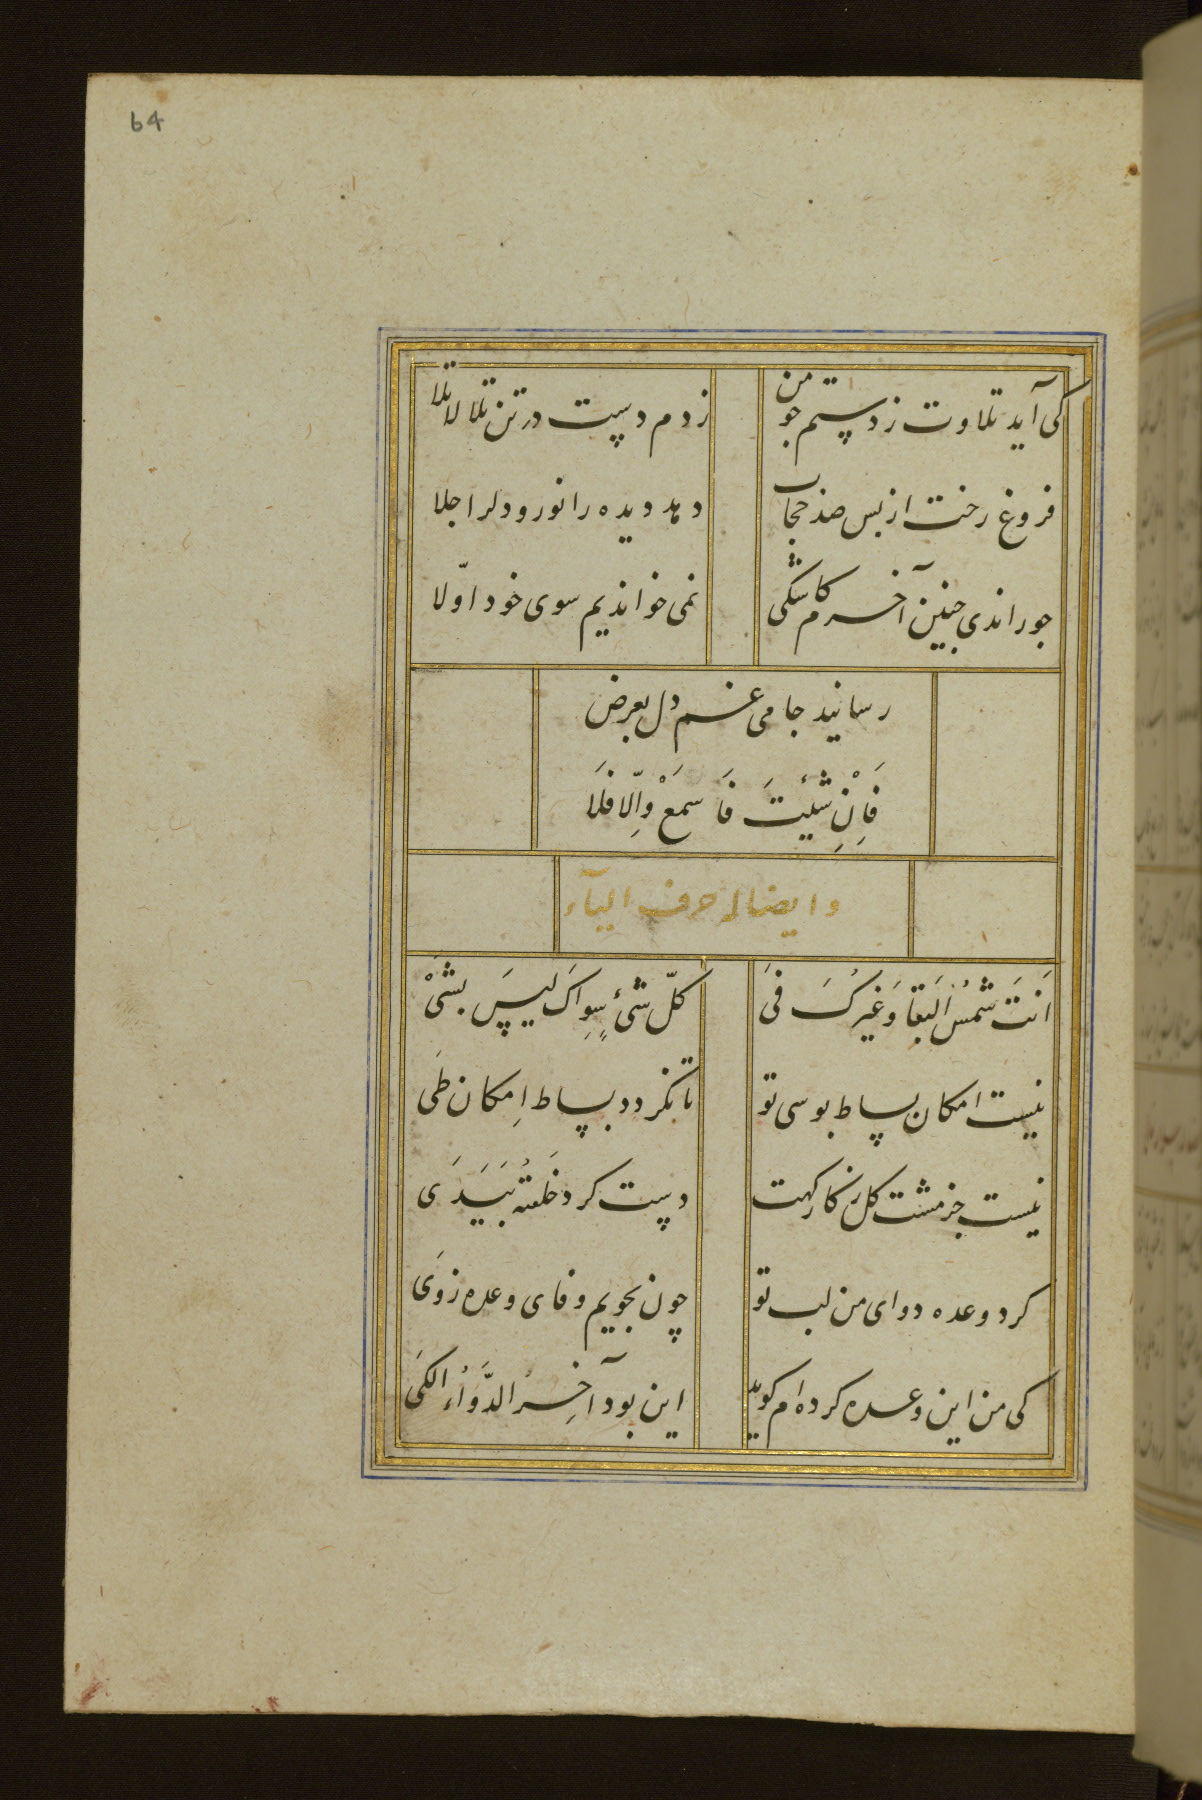 64
کی آید تلاوت ز دستم جو من
زدم دست در تن تلالا تلا
فروغ رخت از بس صد حجاب
دهد دیده را نور و دل را جلا
جو راندی جنین آخرم کاشکی
نمی خواندیم سوی خود اوّلا
رسانید جامی غم دل بعرض
فَاِنْ شئِیتَ فَاسمَعْ وَاِلّا فلَا
و ایضا له حرف الیآء
اَنتَ شمسُ البَقا وَغیرُکَ فیَ
کلّ شیٔ سِواکَ لیسَ بشیْ
نیست امکان بساط بوسی تو
تا نکردد بساط اِمکان طی
نیست جز مشت کل نکار کهت
دست کرد خَلَقتُه بَیَدَی
کرد وعده دوای من لب تو
چون نجویم وفای وعده ز وی
کی من این وعده کرده ام کوید
این بود آخِرُ الدَّوَاءِ الکَی